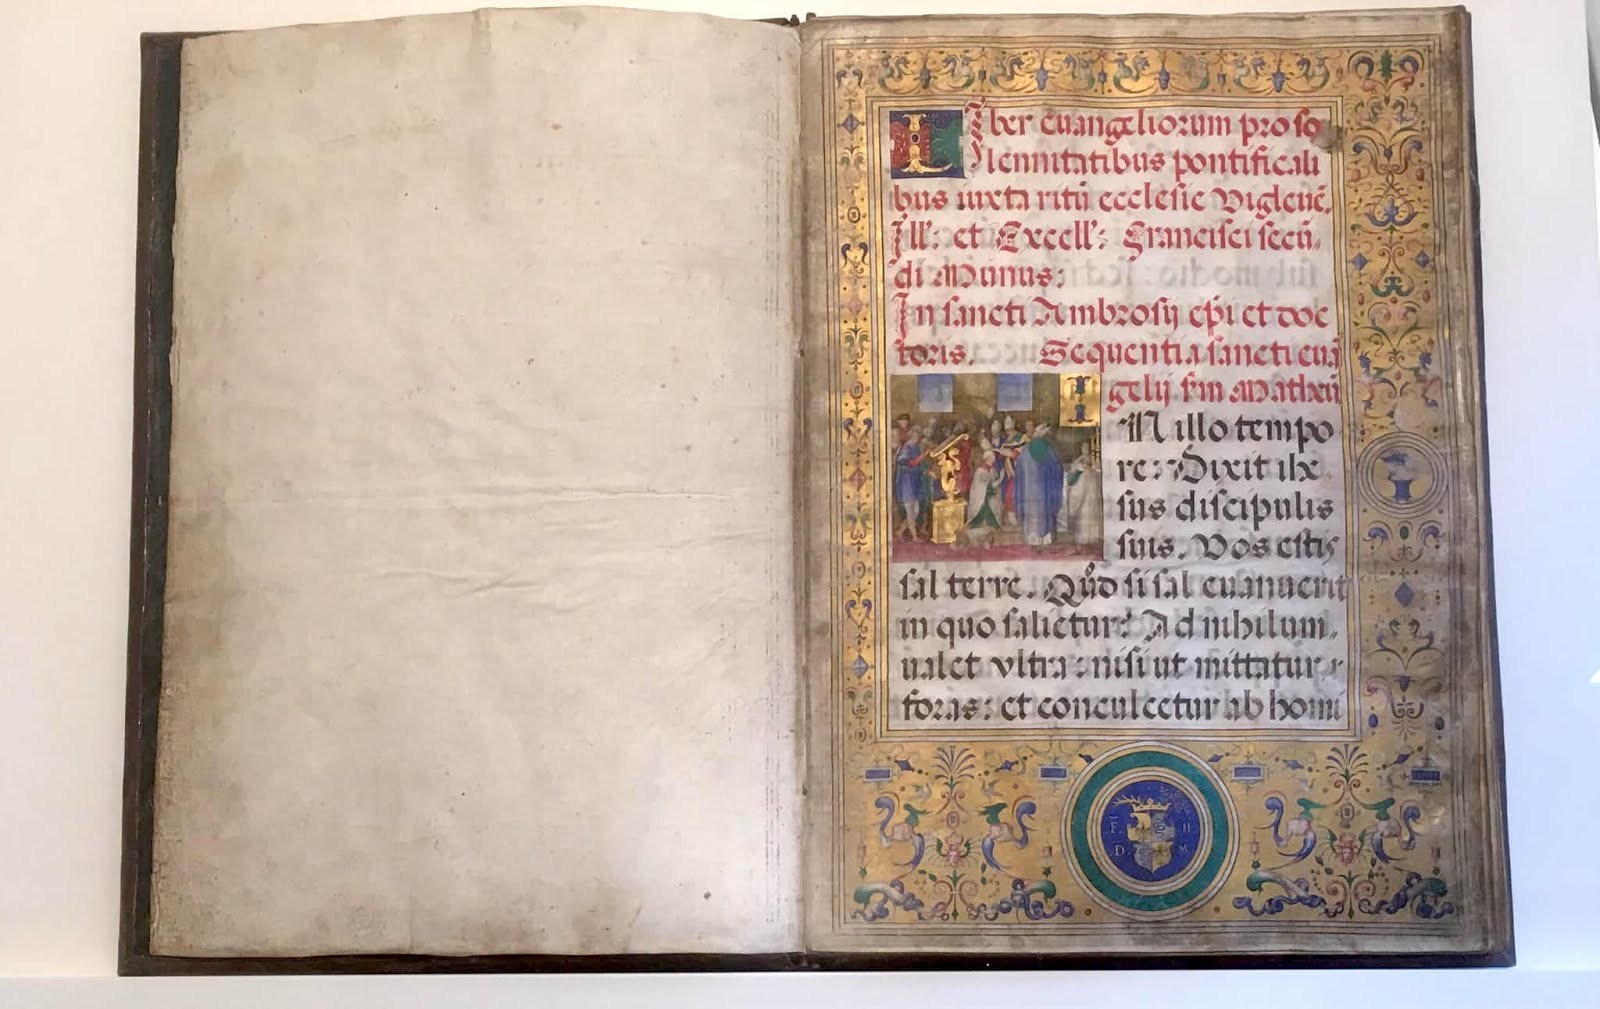 Liber euangeliorum pro so
lennitatibus pontificali
bus iuxta ritū ecclesie Viglevē.
Ill: et Excell: Francisci secū
di Munus:
In sancti Ambrosij ep̄i et doc
toris. Sequentia sancti euā
gelij s̄m Matheū
IN illo tempo
re: Dixit ihe
sus discipulis
suis. Vos estis
sal terre. Quod si sal euanuerit
in quo salietur? Ad nihilum
ualet vltra: nisi ut mittatur
foras: et conculcetur ab homi
F. II
D. M